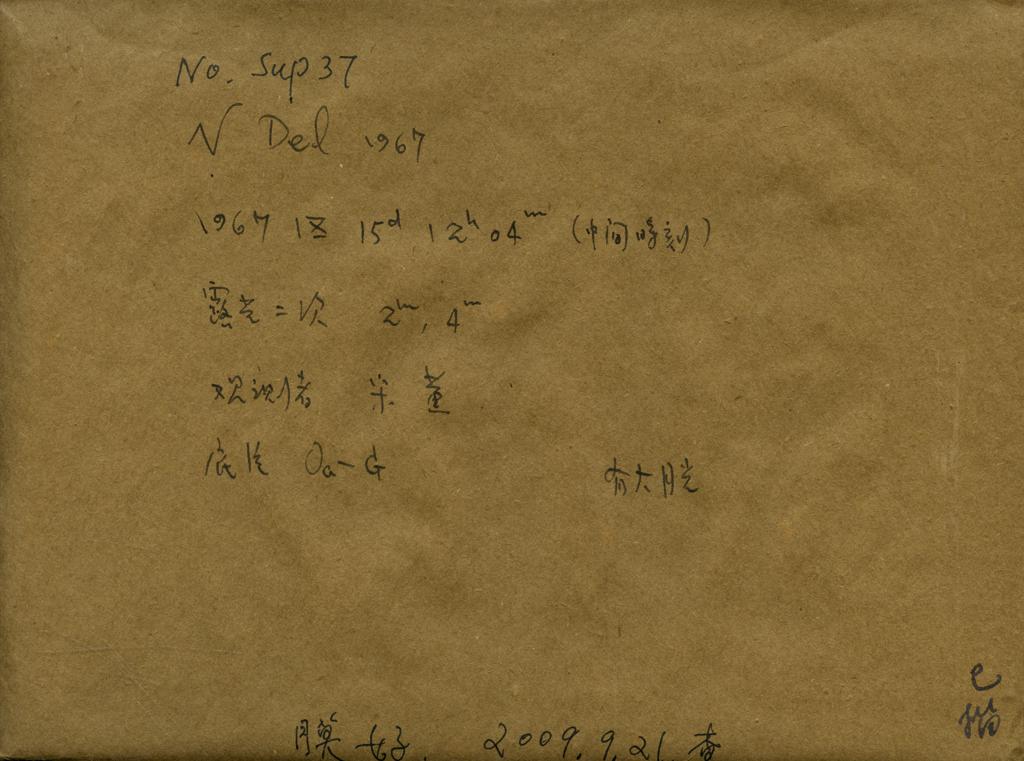 No. Sup 37
N Del 1967
1967 区 15d 12h 04m (中间時刻)
露光二次 2m, 4m
观测者 宋 董
底片 Oa-G
有大月光
膜 好. 2009.9.21. 查
已
描